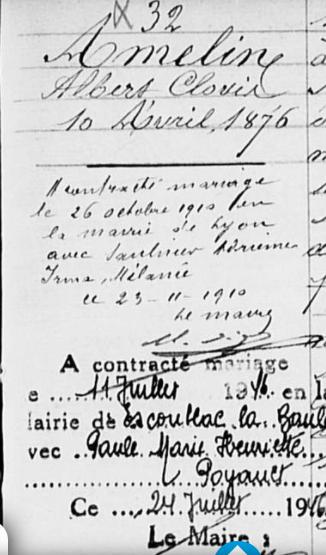 32
Amelin
Albert Clovis
10 Avril 1876
A contracté mariage
le 26 octobre 1910 en
la mairie de Lyon
avec Saulnier
Irma, Mélanie
le 23-11-1910
Le maire
A contracté mariage
e .... 11 Juillet 1946 en la
airie de Escoublac la Baule
vec .. Paule Marie Henriette
Poyanet
Ce .... 24 Juillet .... 1946
Le Maire :